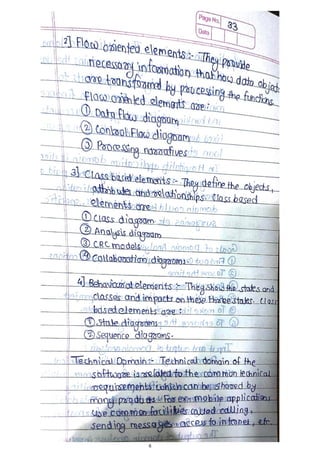 Page No. 33
Date
2] Flow oriented elements :- They provide
necessary information that how data objects
are transformed by processing the functions.
Flow oriented elements are :
① Data flow diagram
② Control Flow diagram
③ Processing narratives
3] Class based elements :- They define the objects,
attributes and relationships. Class based
elements are
① Class diagram
② Analysis diagram
③ CRC models
④ Collaboration diagrams
4] Behavioral elements :- They show the states and
classes and impacts on these three states. Class
based elements are :
① State diagrams
② Sequence diagrams.
Technical Domain :- Technical domain of the
software is related to the common technical
requirements which can be shared by
many products For ex- mobile applications
use common facilities called calling,
sending messages access to internet, etc.